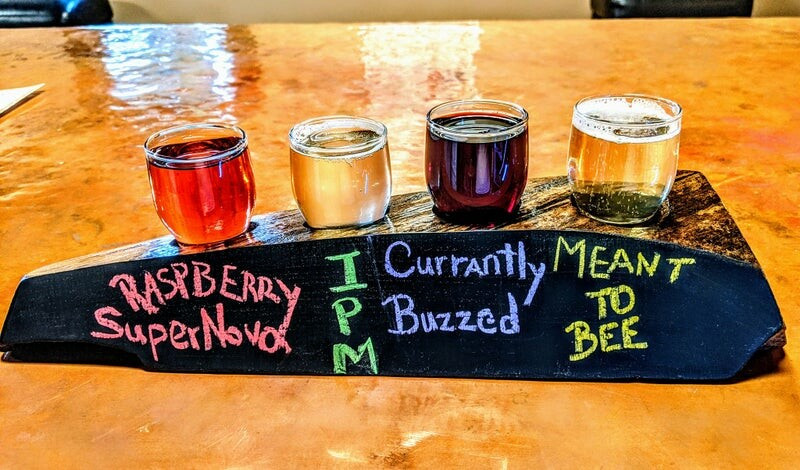 RASPBERRY
SuperNova
I
P
M
Currantly
Buzzed
MEANT
TO
BEE